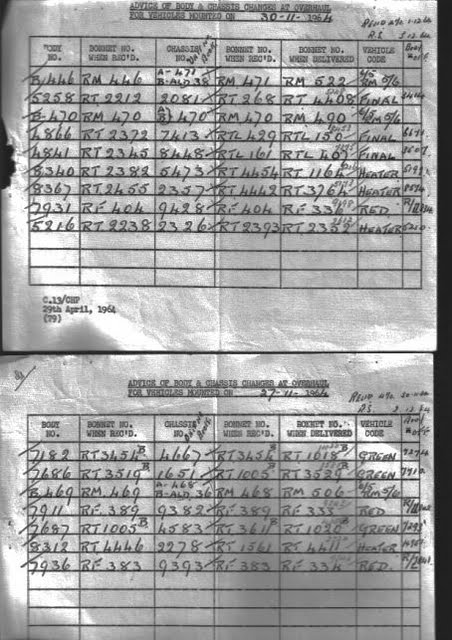 ADVICE OF BODY & CHASSIS CHANGES AT OVERHAUL
FOR VEHICLES MOUNTED ON 30-11-1964
BODY NO. BONNET NO. WHEN REC'D. CHASSIS NO. BONNET NO. WHEN REC'D. BONNET NO. WHEN DELIVERED VEHICLE CODE
B/446 RM 446 A-471 B-ALD 38 RM 471 RM 522 RM 5/6
5258 RT 2212 2081 RT 268 RT 4408 FINAL
B-470 RM 470 470 RM 470 RM 490 RM 5/6
4866 RT 2372 7413 RTL 429 RTL 150 FINAL
4841 RT 2345 8448 RTL 161 RTL FINAL
8340 RT 2382 5473 RT 4454 RT 1164 HEATER
8367 RT 2455 2357 RT 4442 RT 3764 HEATER
7931 RF 404 9428 RF 404 RF RED
5216 RT 2238 2326 RT 2393 RT 2352 HEATER 5210
C.13/CHP
29th April, 1964
(79)
ADVICE OF BODY & CHASSIS CHANGES AT OVERHAUL
FOR VEHICLES MOUNTED ON 27-11-1964
BODY NO. BONNET NO. WHEN REC'D. CHASSIS NO. BONNET NO. WHEN REC'D. BONNET NO. WHEN DELIVERED VEHICLE CODE
7182 RT 3454 B 4667 RT 3454 B RT 1018 B GREEN
7686 RT 3519 B 1651 RT 1005 B RT 3529 B GREEN
B-469 RM 469 A-468 B-ALD 36 RM 468 RM 506 RM 5/6
7911 RF 389 9382 RF 389 RF 333 RED
7687 RT 1005 B 4583 RT 3611 B RT 1020 B GREEN
8312 RT 4446 2278 RT 1561 RT 4411 HEATER
7936 RF 383 9393 RF 383 RF 334 RED